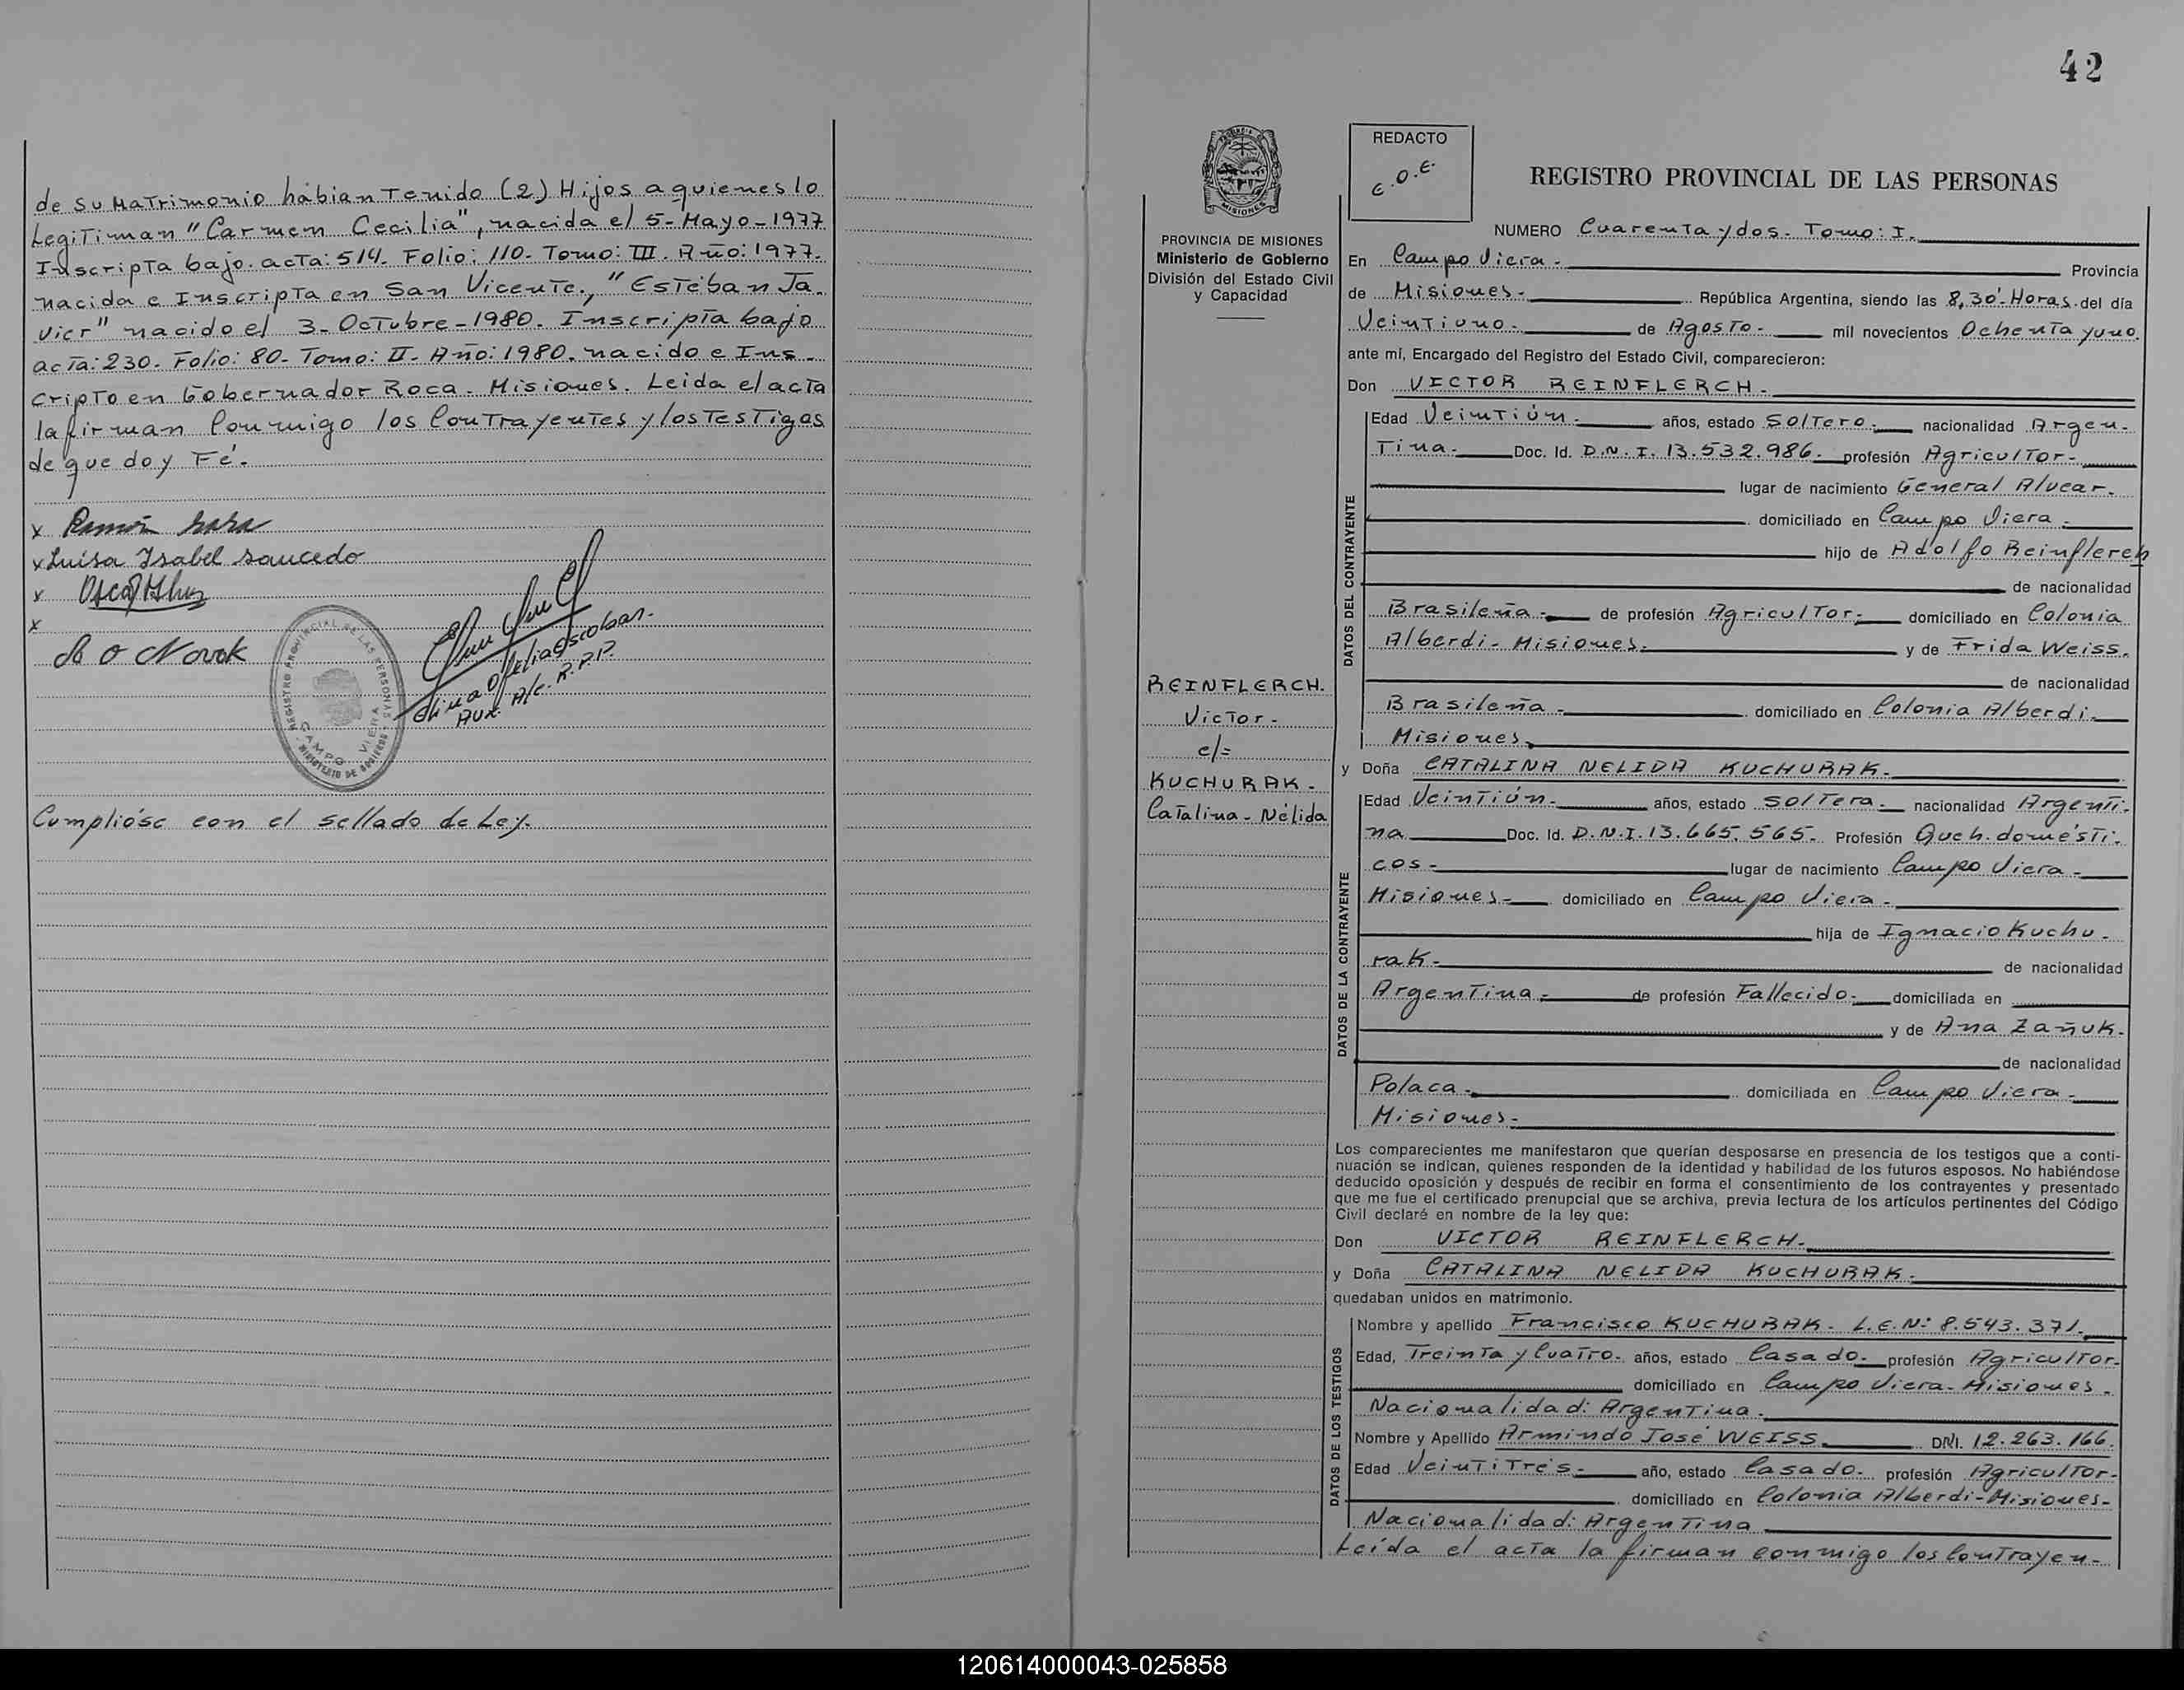 de su Matrimonio habian Tenido (2) Hijos a quienes lo
LegiTiman "Carmen Cecilia", nacida el 5-Mayo-1977
InscripTa bajo. acTa: 514. Folio: 110. Tomo: III. Año: 1977.
nacida e InscripTa en San VicenTe., "EsTéban Ja-
vier" nacido el 3-OcTubre-1980. InscripTa bajo
acTa: 230. Folio: 80- Tomo: II- Año: 1980. nacido e Ins-
cripTo en Gobernador Roca. Misiones. Leida el acTa
la firman Conmigo los ConTrayenTes y los TesTigos
de que doy Fé.
x Ramón
x Luisa Isabel Saucedo
x
x
Novok
REGISTRO PROVINCIAL DE LAS PERSONAS
CAMPO VIERA
MINISTERIO DE GOBIERNO
Elina Ofelia Escobar.
Aux. A/c. R.P.P.
Cumplióse con el sellado de Ley.
42
PROVINCIA DE MISIONES
Ministerio de Gobierno
División del Estado Civil
y Capacidad
REDACTO
E.O.E.
REGISTRO PROVINCIAL DE LAS PERSONAS
NUMERO CuarenTa y dos. Tomo: I.
En Campo Viera- Provincia
de Misiones- República Argentina, siendo las 8,30'-Horas. del día
VeinTiuno- de AgosTo- mil novecientos OchenTa y uno.
ante mí, Encargado del Registro del Estado Civil, comparecieron:
Don VICTOR REINFLERCH-
DATOS DEL CONTRAYENTE
Edad VeinTiún- años, estado SolTero- nacionalidad Argen-
Tina- Doc. Id. D.N.I. 13.532.986. profesión AgriculTor-
lugar de nacimiento General Alvear.
domiciliado en Campo Viera-
hijo de Adolfo Reinflerch
de nacionalidad
Brasileña- de profesión AgriculTor- domiciliado en Colonia
Alberdi- Misiones- y de Frida Weiss.
de nacionalidad
Brasileña- domiciliado en Colonia Alberdi-
Misiones-
REINFLERCH.
VicTor-
c/=
KUCHURAK-
CaTalina-Nélida
y Doña CATALINA NELIDA KUCHURAK-
DATOS DE LA CONTRAYENTE
Edad VeinTiún- años, estado SolTera- nacionalidad ArgenTi-
na Doc. Id. D.N.I. 13.665.565- Profesión Queh. domésTi-
cos- lugar de nacimiento Campo Viera-
Misiones- domiciliado en Campo Viera-
hija de Ignacio Kuchu-
rak- de nacionalidad
ArgenTina- de profesión Fallecido- domiciliada en
y de Ana Zañuk-
de nacionalidad
Polaca- domiciliada en Campo Viera-
Misiones-
Los comparecientes me manifestaron que querían desposarse en presencia de los testigos que a conti-
nuación se indican, quienes responden de la identidad y habilidad de los futuros esposos. No habiéndose
deducido oposición y después de recibir en forma el consentimiento de los contrayentes y presentado
que me fue el certificado prenupcial que se archiva, previa lectura de los artículos pertinentes del Código
Civil declaré en nombre de la ley que:
Don VICTOR REINFLERCH-
y Doña CATALINA NELIDA KUCHURAK-
quedaban unidos en matrimonio.
DATOS DE LOS TESTIGOS
Nombre y apellido Francisco KUCHURAK- L.E.Nº 8.543.371.
Edad, TreinTa y CuaTro- años, estado Casado- profesión AgriculTor-
domiciliado en Campo Viera-Misiones-
Nacionalidad: ArgenTina-
Nombre y Apellido Armindo José WEISS DNI. 12.263.166.
Edad VeinTiTrés- año, estado Casado- profesión AgriculTor-
domiciliado en Colonia Alberdi-Misiones-
Nacionalidad: ArgenTina
Leída el acTa la firman conmigo los ConTrayen-
120614000043-025858